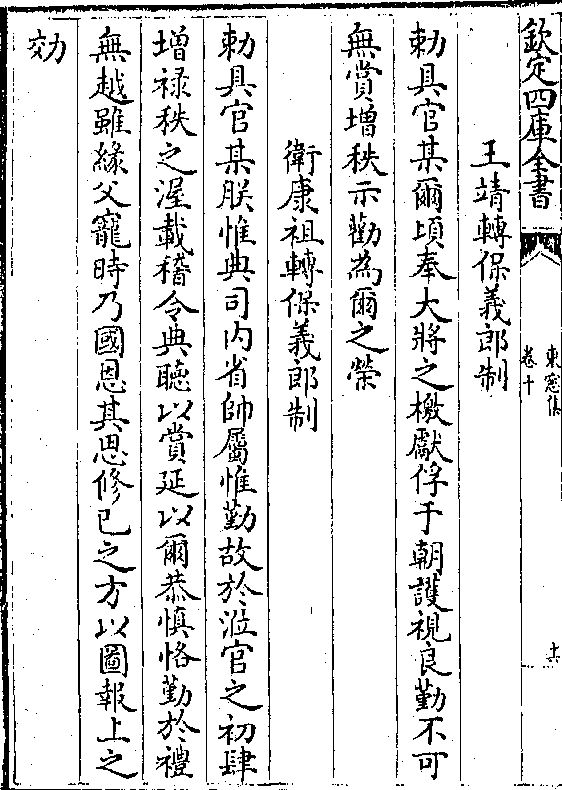 欽定四庫全書
東窻集
卷十
十六
王靖轉保義郎制
勅具官某爾頃奉大將之檄獻俘于朝護視良勤不可
無賞增秩示勸為爾之榮
衛康祖轉保義郎制
勅具官某朕惟典司内省帥屬惟勤故於涖官之初肆
增禄秩之渥載稽令典聽以賞延以爾恭慎恪勤於禮
無越雖緣父寵時乃國恩其思修已之方以圖報上之
効